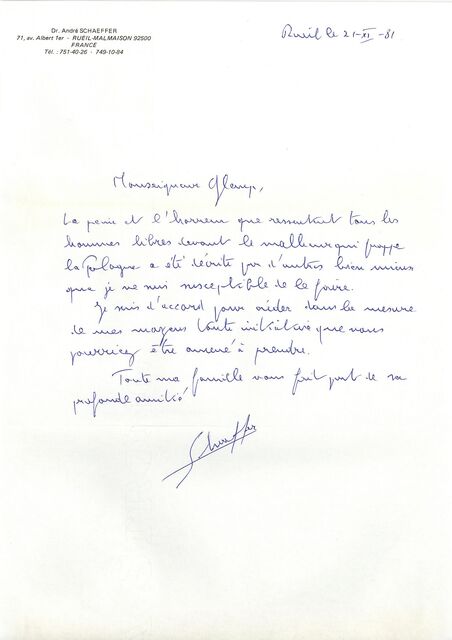 Dr. André SCHAEFFER
71, av. Albert 1er - RUEIL-MALMAISON 92500
FRANCE
Tél. : 751-40-26 - 749-10-94
Rueil le 21-XI-81
Monseigneur Glemp,
La peine et l'horreur que ressentent tous les
hommes libres devant le malheur qui frappe
la Pologne a été décrite par d'autres bien mieux
que je ne suis susceptible de le faire.
Je suis d'accord pour aider dans la mesure
de mes moyens toute initiative que vous
pourriez être amené à prendre.
Toute ma famille vous fait part de sa
profonde amitié
Schaeffer